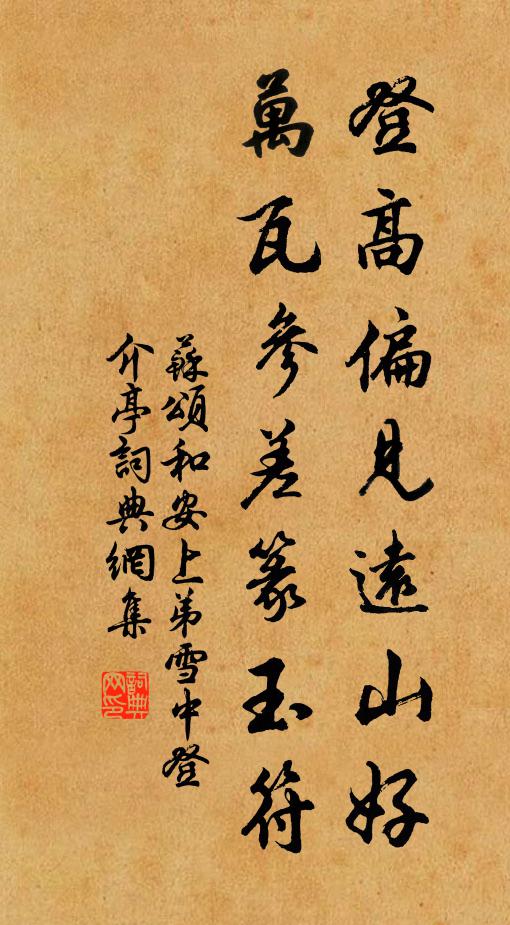 登高偏見遠山好
萬瓦參差篆玉符
蘇頌和安上弟雪中登
介亭詞典網集
詞典网印